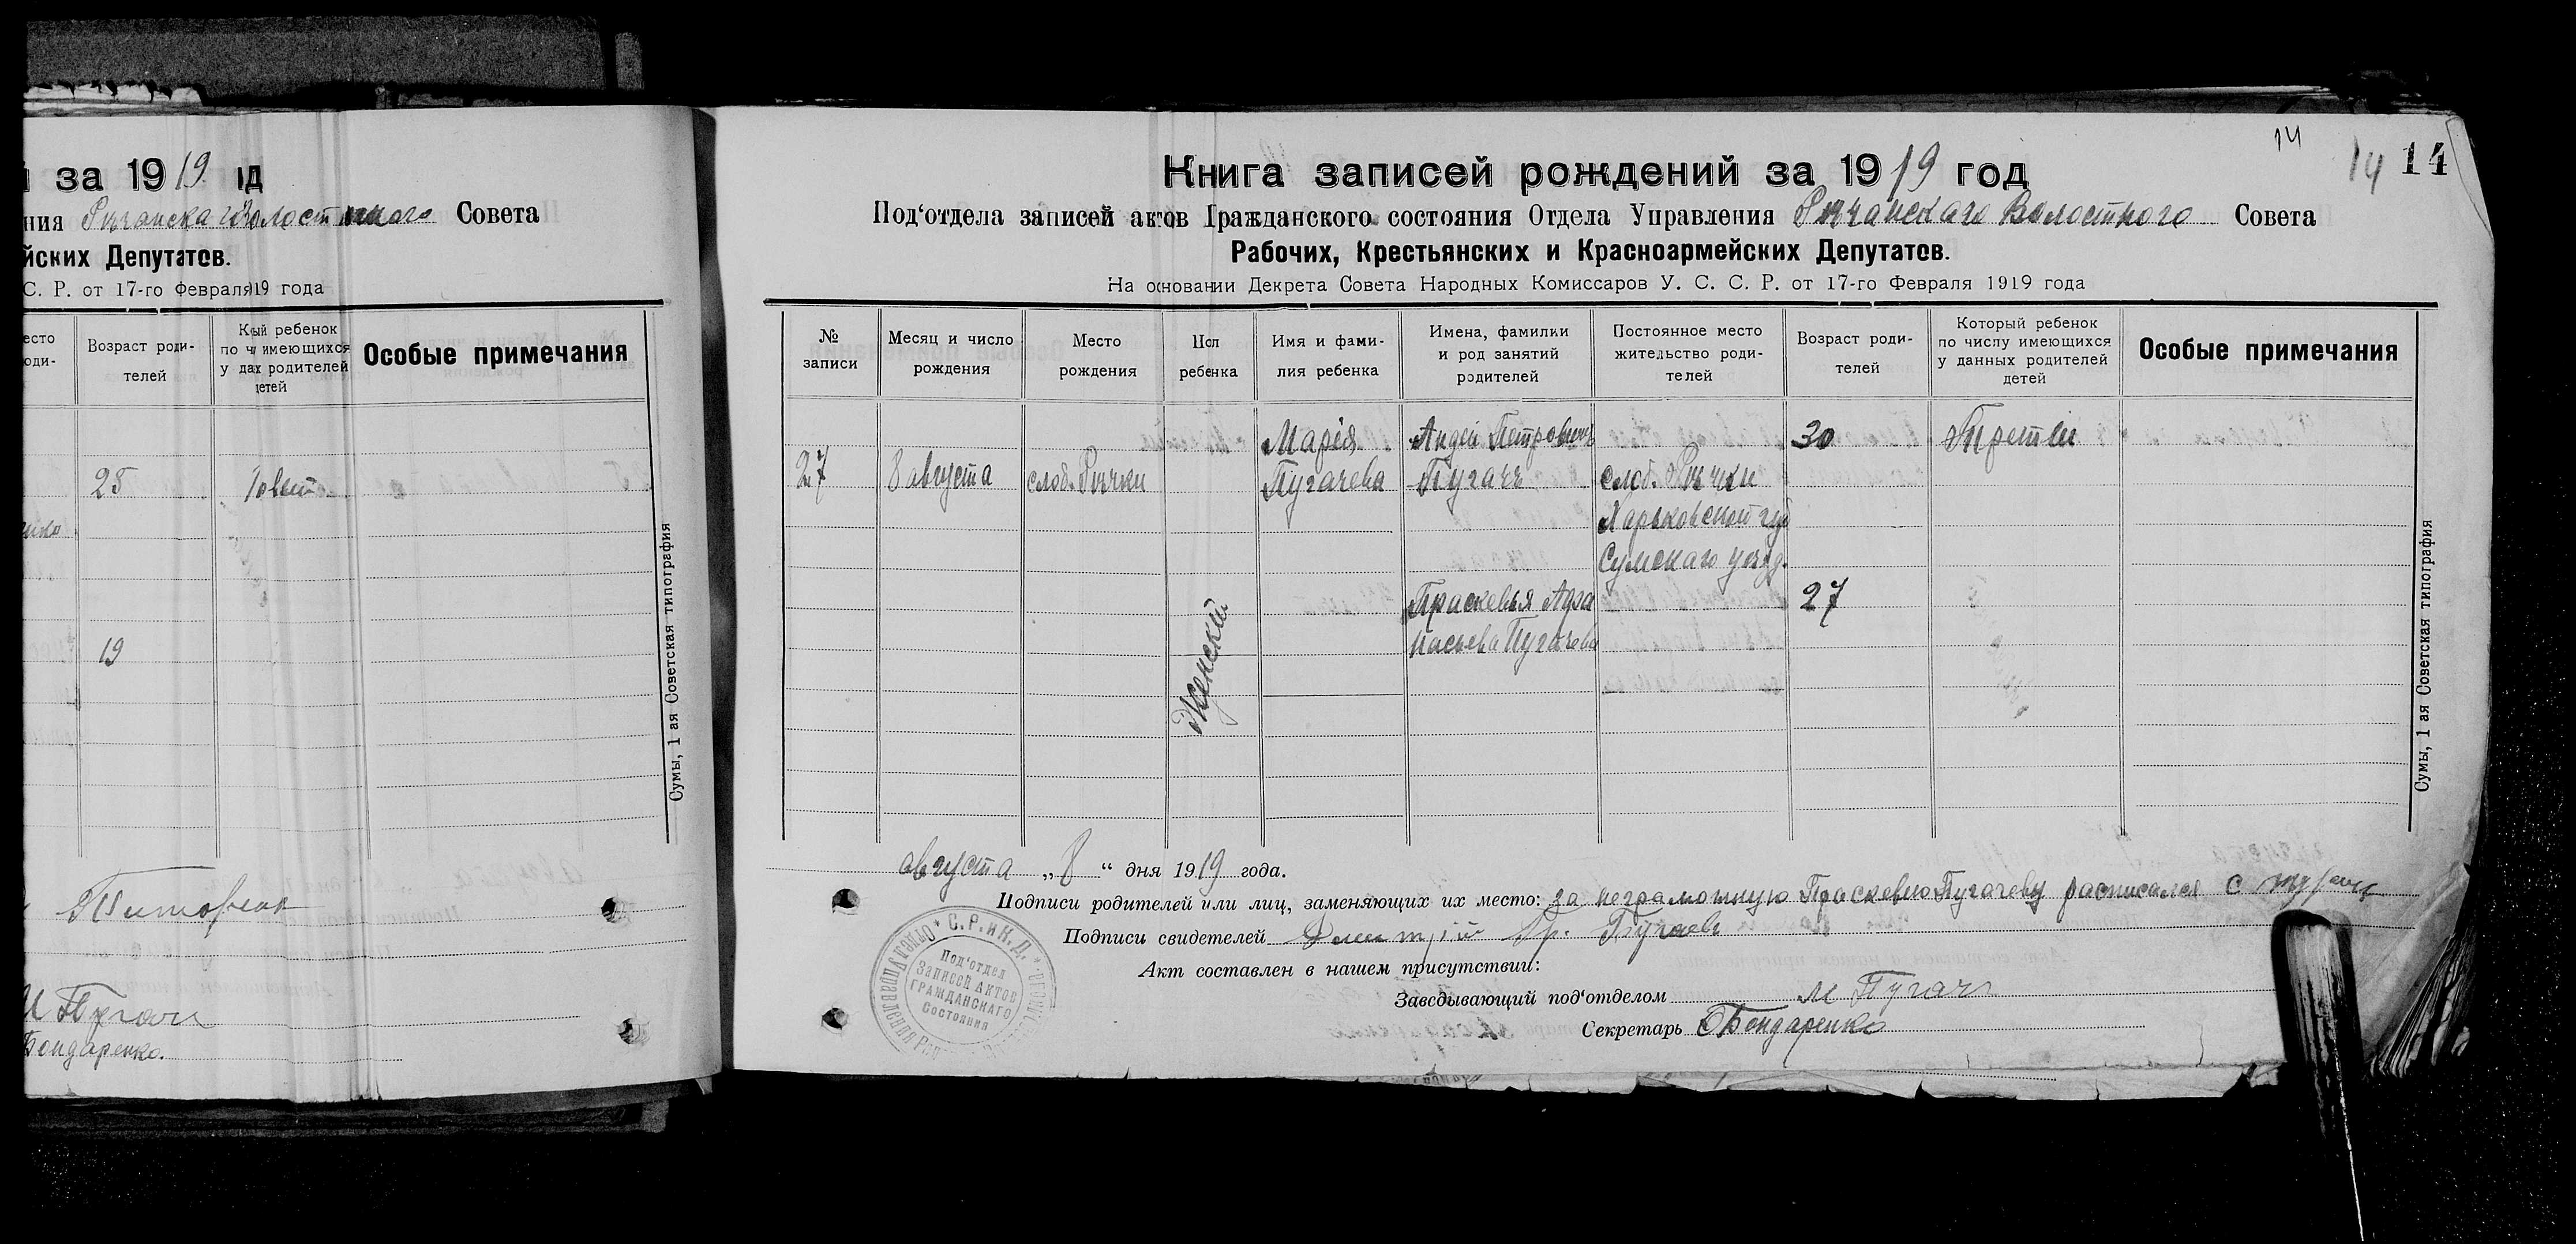 за 1919
ния Рѣчанска Волостного Совета
йских Депутатов.
С. Р. от 17-го Февраля 19 года
Возраст роди-
телей
ребенок
имеющихся
родителей
Особые примечания
25
19
Сумы, 1 ая Советская типография
Пугачъ
Бондаренко.
14
14 14
Книга записей рождений за 1919 год
Под'отдела записей актов Гражданского состояния Отдела Управления Рѣчанскаго Волостного Совета
Рабочих, Крестьянских и Красноармейских Депутатов.
На основании Декрета Совета Народных Комиссаров У. С. С. Р. от 17-го Февраля 1919 года
№
записи
Месяц и число
рождения
Место
рождения
Пол
ребенка
Имя и фами-
лия ребенка
Имена, фамилии
и род занятий
родителей
Постоянное место
жительство роди-
телей
Возраст роди-
телей
Который ребенок
по числу имеющихся
у данных родителей
детей
Особые примечания
27
8 августа
слоб. Рѣчки
Женский
Марія
Пугачева
Андей Петрович
Пугачъ
Праскевья Афа
насьева Пугачева
слоб. Рѣчки
Харьковской губ
Сумскаго уезд.
30
27
Сумы, 1 ая Советская типография
августа „8“ дня 1919 года.
Подписи родителей или лиц, заменяющих их место: за неграмотную Праскевю Пугачеву расписался С
Подписи свидетелей
Акт составлен в нашем присутствии:
Заведывающий под'отделом М Пугачъ
Секретарь Бондаренко
С.Р.иК.Д.
Под'отдел
Записей Актов
Гражданскаго
Состояния